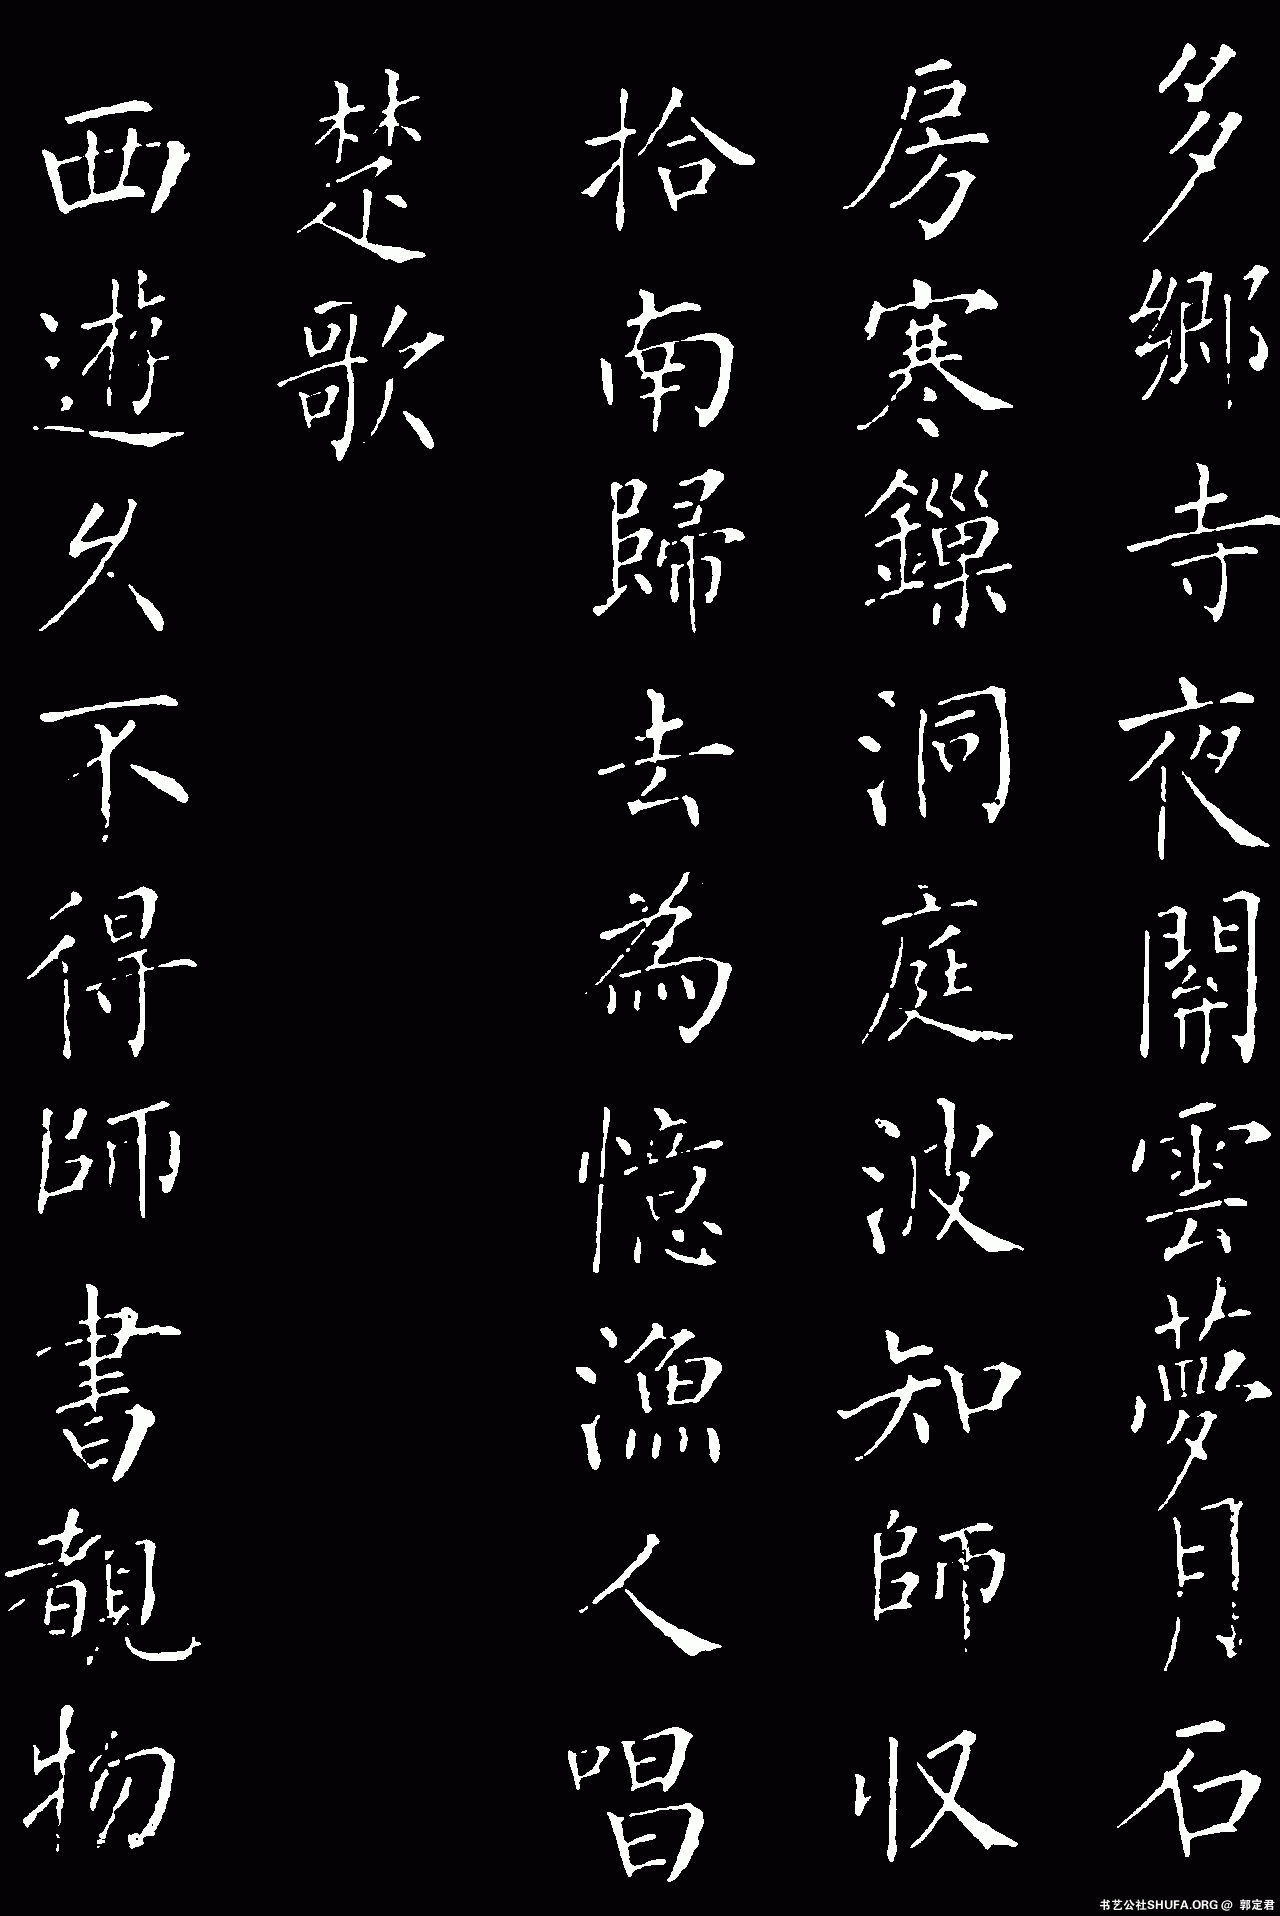 多鄉寺夜開雲夢月石
房寒鏁洞庭波知師收
拾南歸去為憶漁人唱
楚歌
西遊久不得師書覩物
书艺公社SHUFA.ORG @ 郭定君